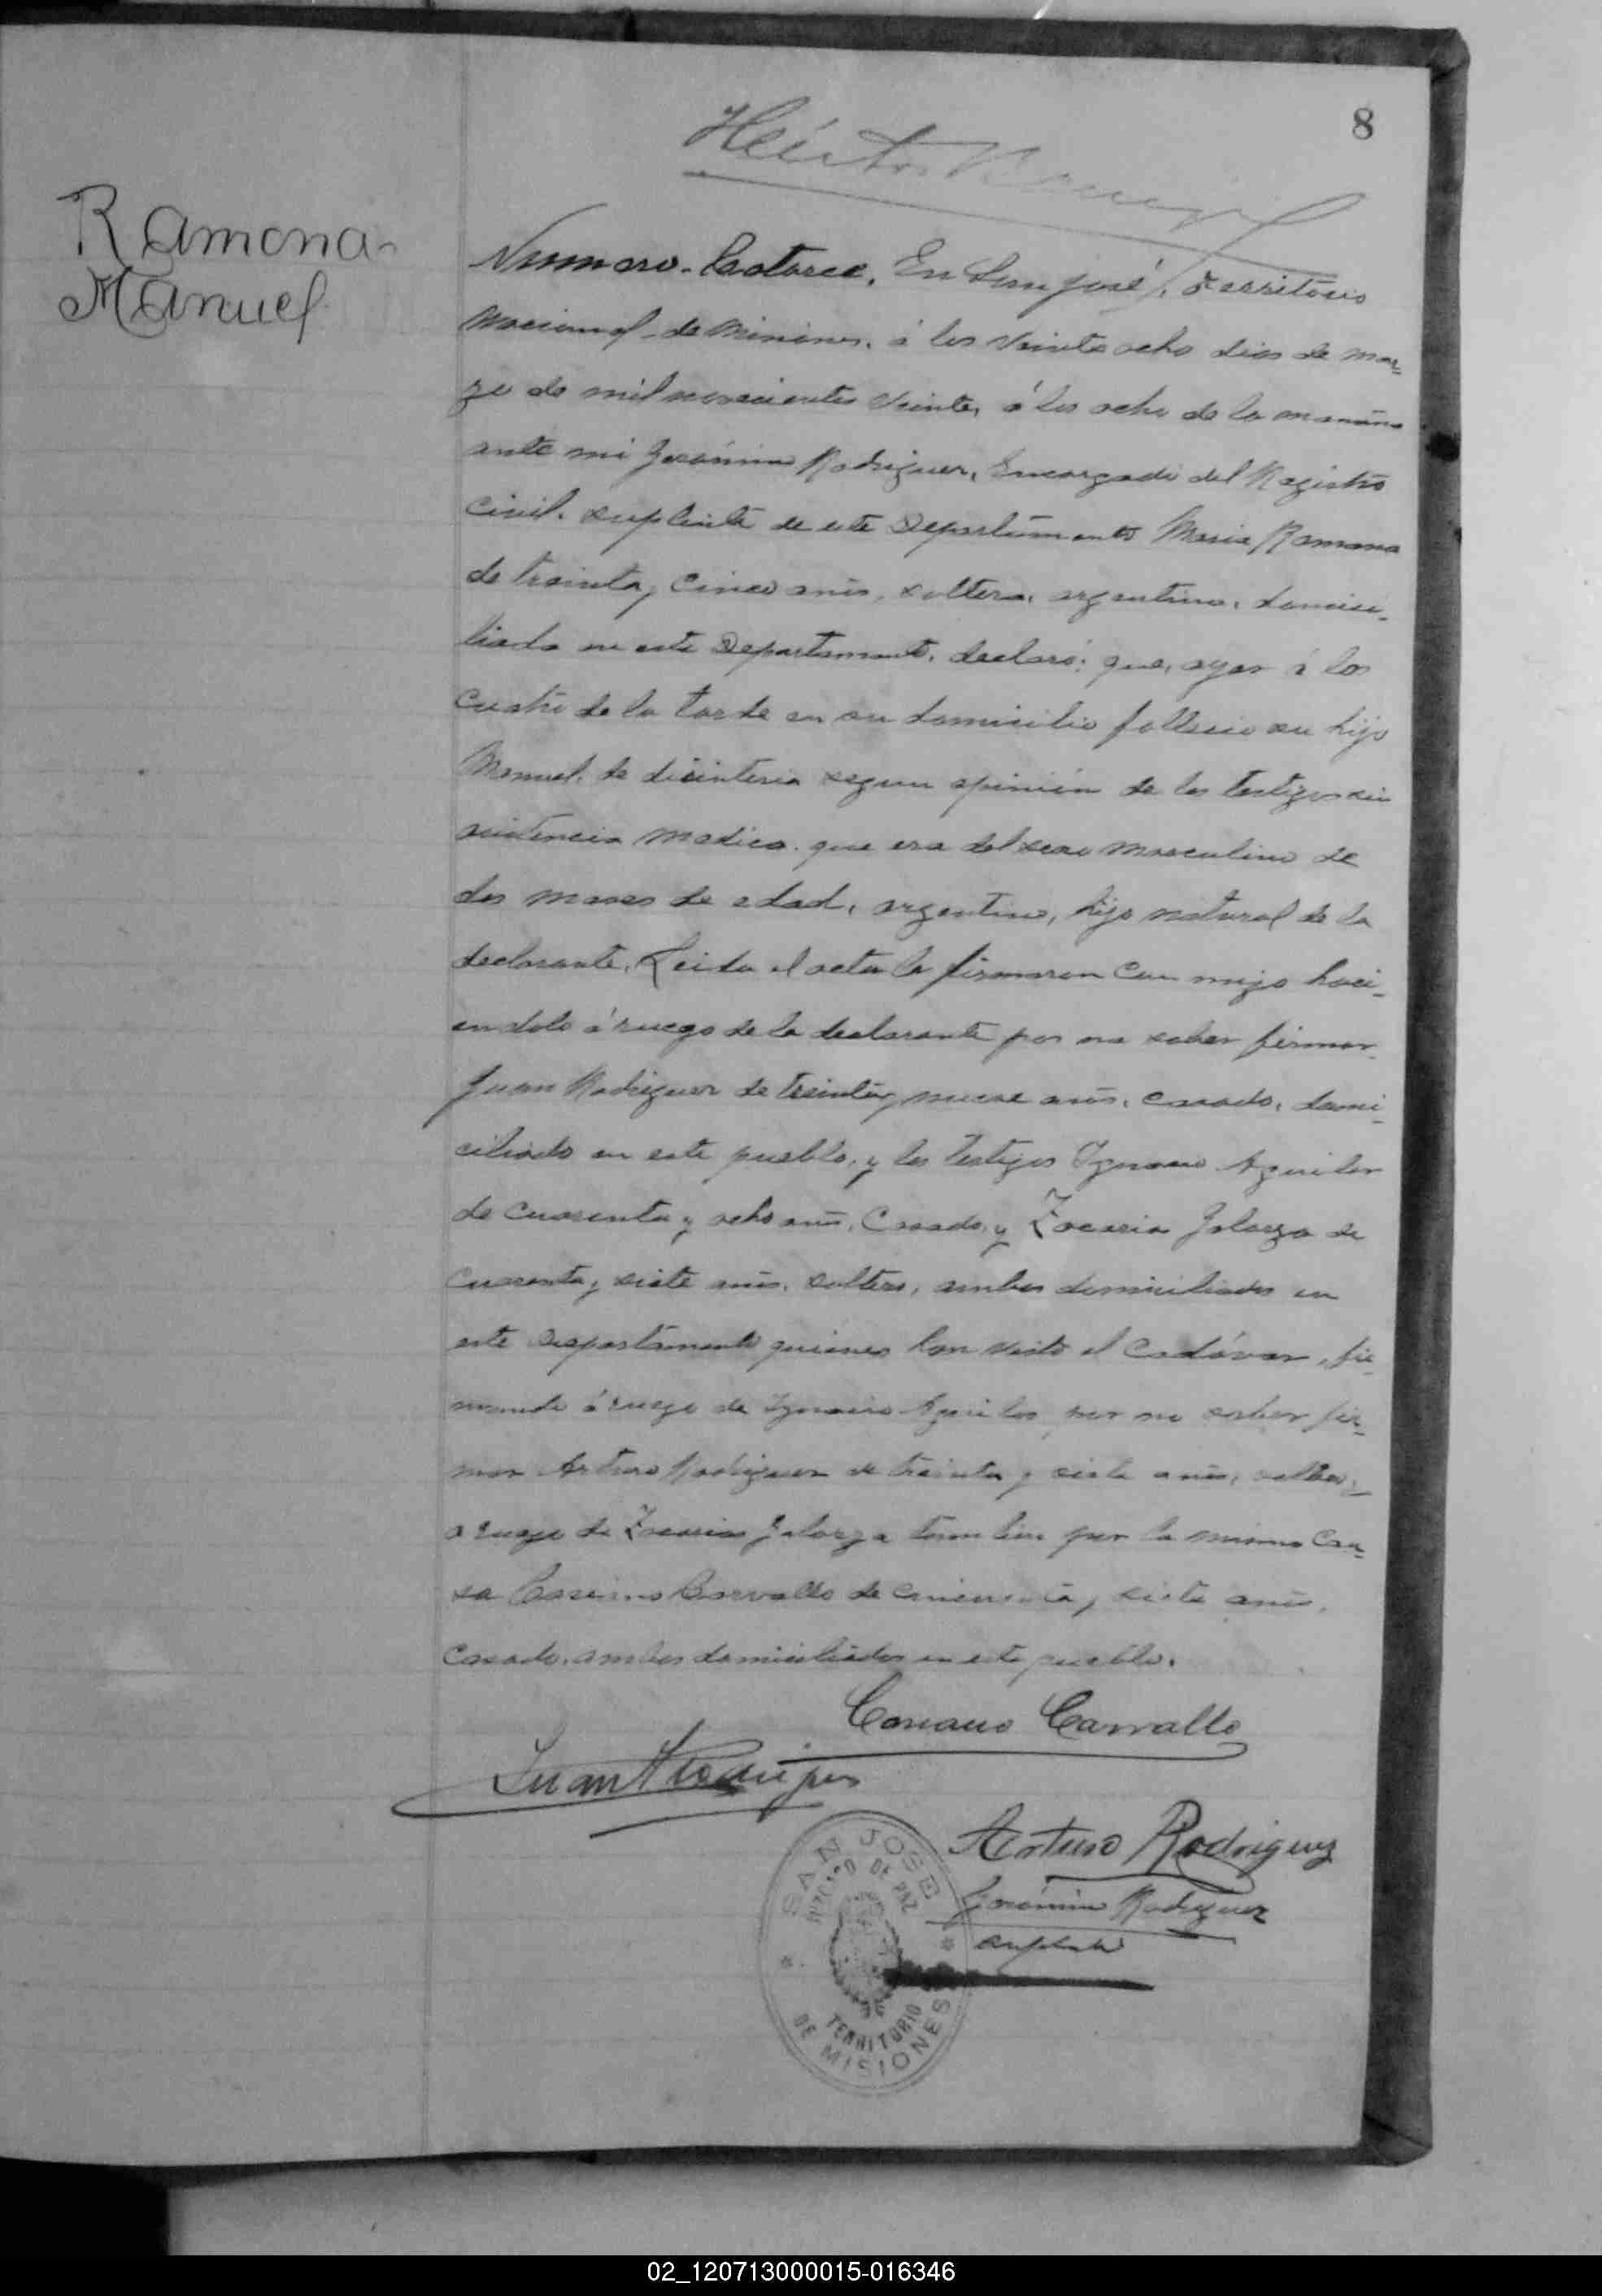 8
Héctor
Ramona
Manuel
Numero. Catorce. En San José, Territorio
Nacional de Misiones, á los veinte ocho dias de mar-
zo de mil novecientos veinte, á las ocho de la mañana
ante mi Gerónimo Rodriguez, Encargado del Registro
Civil. suplente de este Departamento Maria Ramona
de treinta y cinco años, soltera, argentina, domici-
liada en este Departamento, declaró: que, ayer á las
cuatro de la tarde en su domicilio falleció su hijo
Manuel. de disinteria segun opinión de los testigos sin
asistencia medica. que era del sexo masculino de
dos meses de edad, argentino, hijo natural de la
declarante. Leida el acta la firmaron con migo haci-
endolo á ruego de la declarante por no saber firmar
Juan Rodriguez de treinta y nueve años, casado, domi-
ciliado en este pueblo, y los testigos Ignacio Aguilar
de cuarenta y ocho años, Casado, y Zacaria Galarza de
cuarenta y siete años, soltero, ambos domiciliados en
este Departamento quienes han visto el Cadáver, fir-
mando á ruego de Ignacio Aguilar por no saber fir-
mar Arturo Rodriguez de treinta y siete años, soltero,
a ruego de Zacarias Galarza tambien por la misma Cau-
sa Carvallo de cincuenta y siete años,
Casado, ambos domiciliados en este pueblo.
Carvallo
Juan Rodriguez
Arturo Rodriguez
Gerónimo Rodriguez
suplente
SAN JOSE
JUZGADO DE PAZ
TERRITORIO
DE MISIONES
02_120713000015-016346